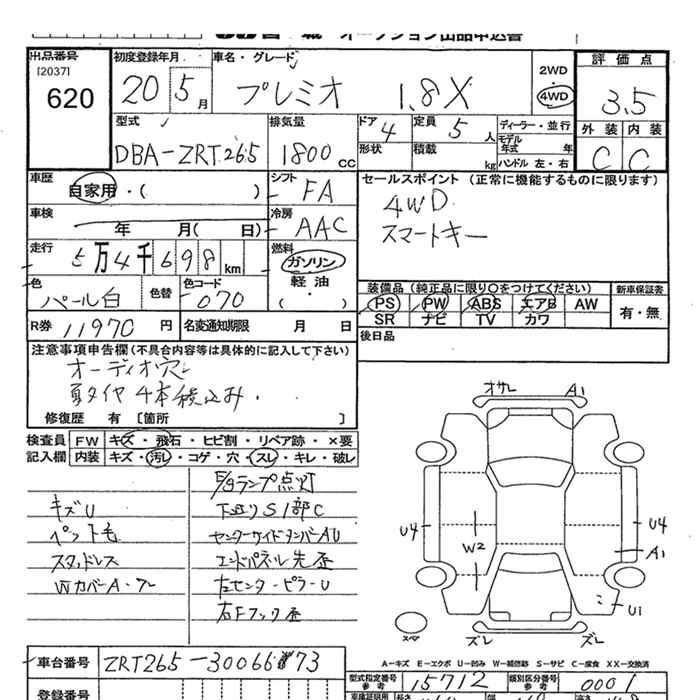 オークション出品申込書
出品番号 初度登録年月 車名・グレード 2WD 評価点
[2037]
620 20 5月 プレミオ 1.8X 4WD 3.5
型式 排気量 ドア 4 定員 5人 ディーラー・並行 外装 内装
DBA-ZRT265 1800cc 形状 積載 kg モデル年式 年 C C
ハンドル 左・右
車歴 自家用・( ) シフト FA セールスポイント (正常に機能するものに限ります)
車検 年 月( 日) 冷房 AAC 4WD
スマートキー
走行 5万4千698km 燃料 ガソリン
軽油・( )
色 パール白 色替 色コード 070 装備品 (純正品に限り○をつけてください) 新車保証書
PS PW ABS エアB AW 有・無
SR ナビ TV カワ
R券 11970円 名変通知期限 月 日 後日品
注意事項申告欄(不具合内容等は具体的に記入して下さい)
オーディオ穴
夏タイヤ4本積込み.
修復歴 有 [箇所 ]
検査員 FW キズ・飛石・ヒビ割・リペア跡・×要
記入欄 内装 キズ・汚レ・コゲ・穴・スレ・キレ・破レ
E/gランプ点灯
キズU 下廻りS1部C
ペット毛 センターサイドメンバーAU
スタッドレス エンドパネル先歪
WカバーA・ワレ 左センターピラーU
右Fフック歪
オサレ A1
U4 W2 U4
A1
U1
スペア
ズレ ズレ
A－キズ E－エクボ U－凹み W－補修跡 S－サビ C－腐食 XX－交換済
車台番号 ZRT265-3006673
型式指定番号 参考 15712 類別区分番号 参考 0001
登録番号